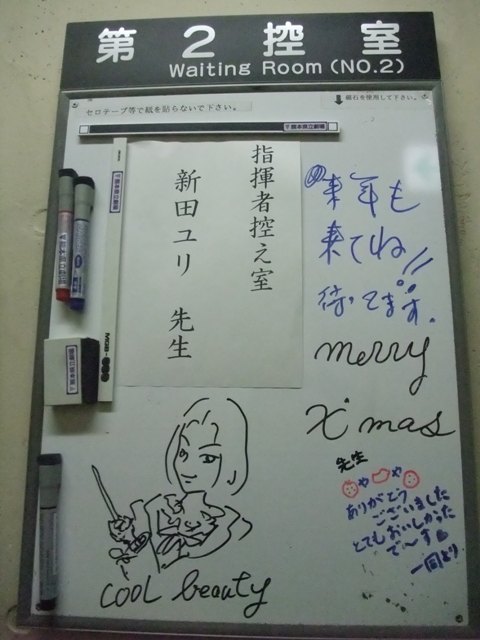 第2控室
Waiting Room (NO.2)
セロテープ等で紙を貼らないで下さい。
磁石を使用して下さい。
熊本県立劇場
熊本県立劇場
指揮者控え室
新田ユリ 先生
来年も
来てね!!
待ってます。
merry
X'mas
先生
や や
ありがとう
ございました
とてもおいしかった
で〜す
一同より
cool beauty